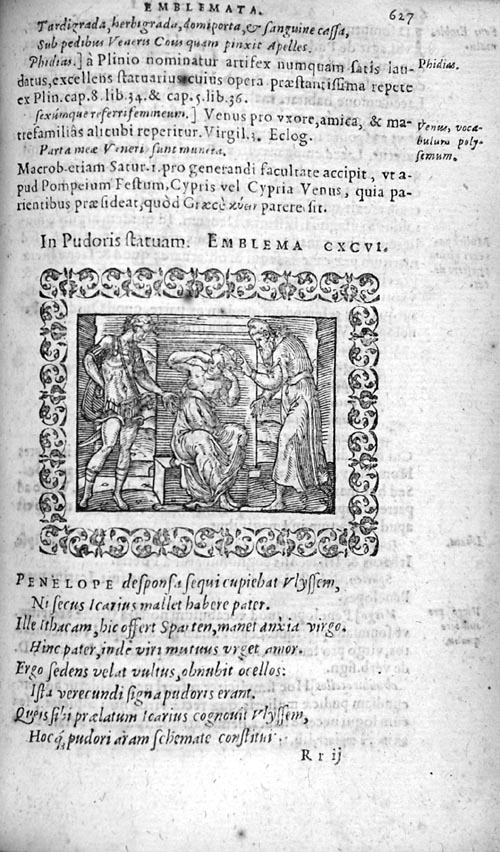 EMBLEMATA.
627
Tardigrada, herbigrada, domiporta, & sanguine cassa,
Sub pedibus Veneris Cous quam pinxit Apelles.
Phidias.] à Plinio nominatur artifex numquam satis lau-
datus, excellens statuarius cuius opera præstantissima repete
ex Plin. cap. 8. lib. 34. & cap. 5. lib. 36.
Phidias.
sexúmque referri femineum.] Venus pro vxore, amica, & ma-
trefamiliâs alicubi reperitur. Virgil. 3. Eclog.
Parta meæ Veneri sunt munera.
Venus, vocabulum
polysemum.
Macrob. etiam Satur. 1. pro generandi facultate accipit, vt a-
pud Pompeium Festum, Cypris vel Cypria Venus, quia pa-
rientibus præsideat, quòd Græcè κύειν parere sit.
In Pudoris statuam. EMBLEMA CXCVI.
PENELOPE desponsa sequi cupiebat Vlyssem,
Ni secus Icarius mallet habere pater.
Ille Ithacam, hic offert Sparten, manet anxia virgo.
Hinc pater, inde viri mutuus vrget amor.
Ergo sedens velat vultus, obnubit ocellos:
Ista verecundi signa pudoris erant.
Queis sibi prælatum Icarius cognouit Vlyssem,
Hocq́; pudori aram schemate constituit.
Rr ij